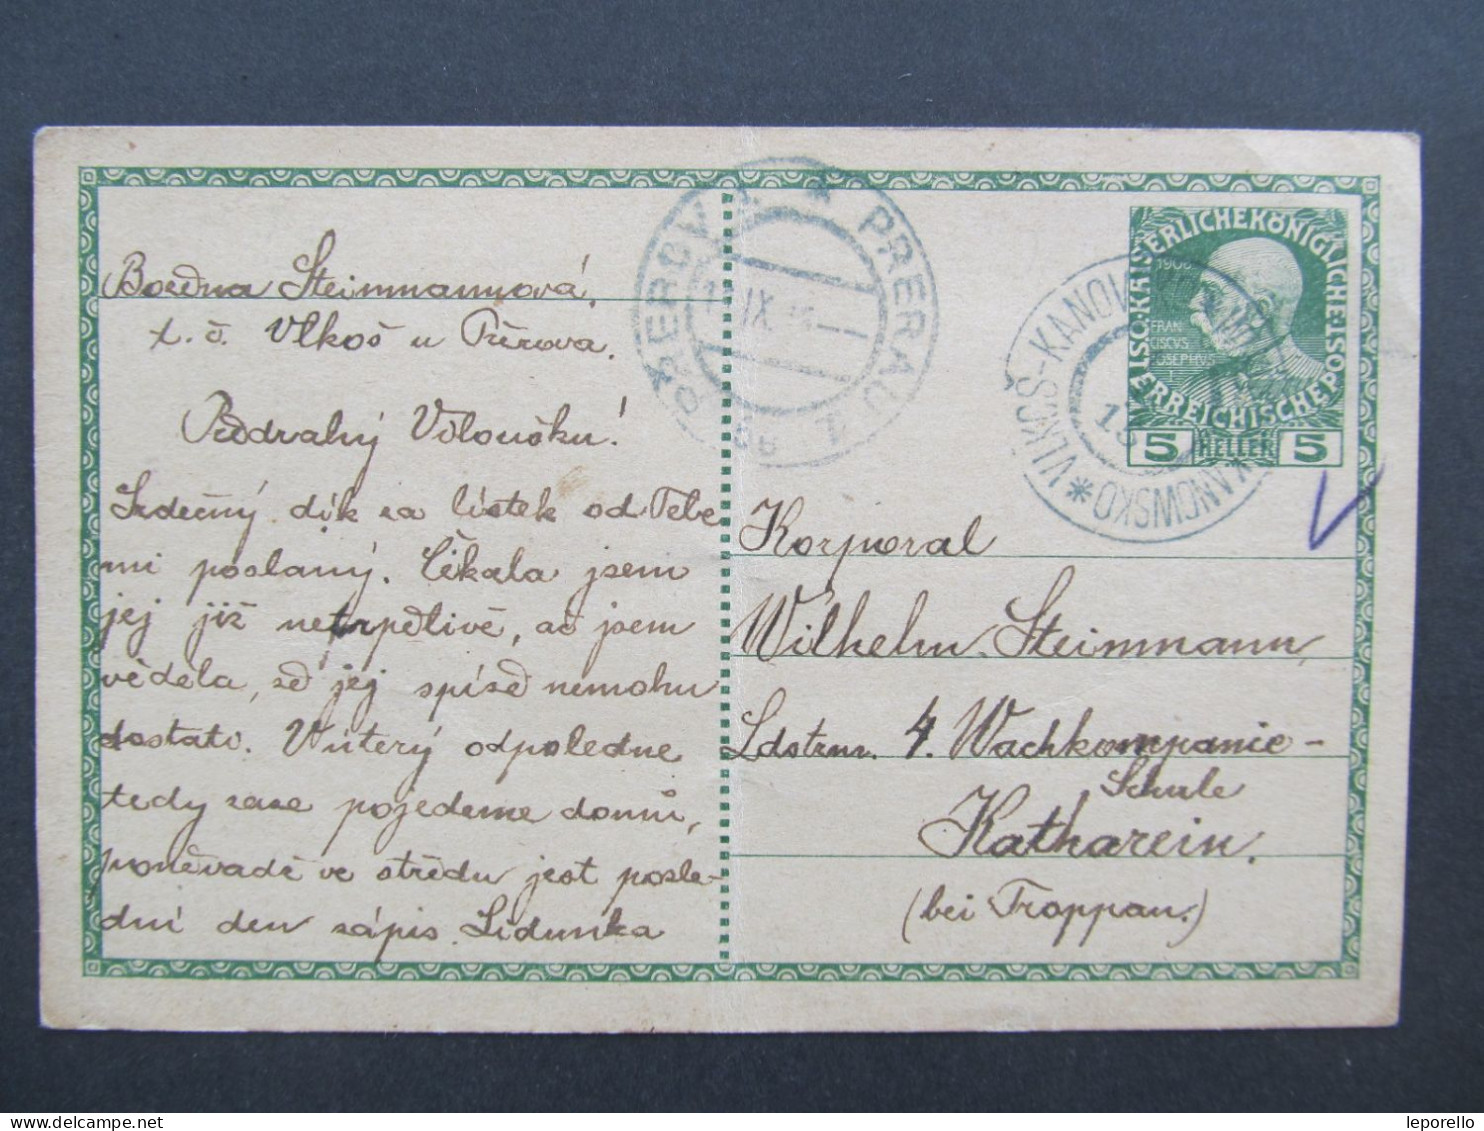 Božena Steinmannová.
t. č. Vlkoš u Přerova.
Předrahý Viloušku!
Srdečný dík za lístek od Tebe
mi poslaný. Čekala jsem
jej již netrpělivě, ač jsem
věděla, že jej spíše nemohu
dostati. V úterý odpoledne
tedy zase pojedeme domů,
poněvadž ve středu jest posle-
dní den zápis. Lidunka
PŘEROV 1. * PRERAU 1.
IX
8a
VLKOŠ-KANOVSKO
KANOWSKO
KAISERLICHEKÖNIGLICHE
ÖSTERREICHISCHEPOST
1908
FRAN
CISCUS
JOSEPHUS
I
5 HELLER 5
Korporal
Wilhelm Steinmann,
Ldstrm. 4. Wachkompanie-
Schule
Katharein.
(bei Troppau.)
leporello